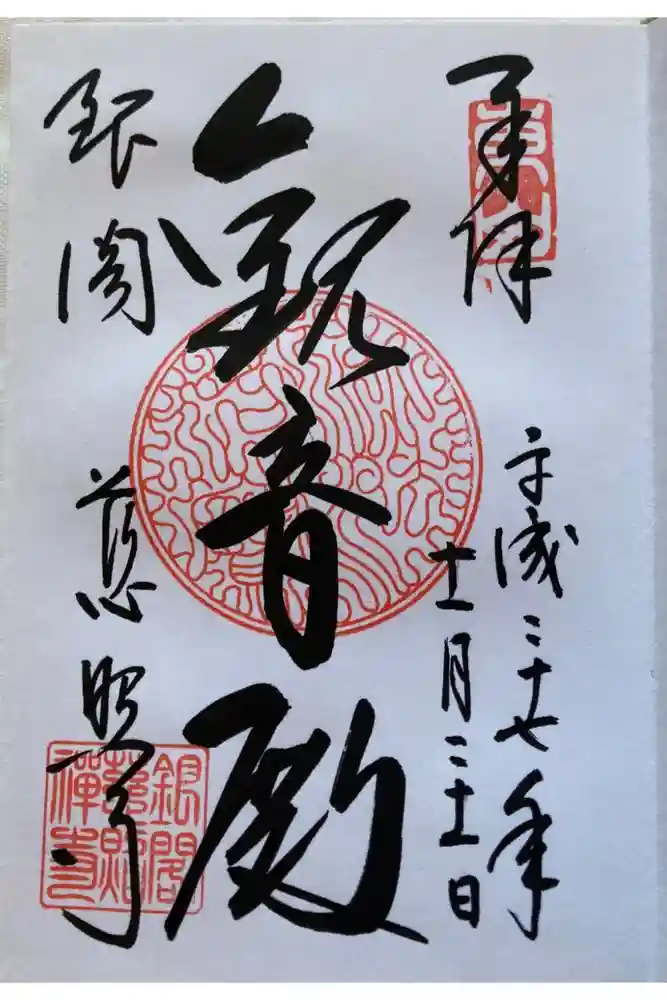 奉拝
東山
平成二十七年
十一月二十一日
観音殿
銀閣
慈照寺
銀閣
慈照
禪寺